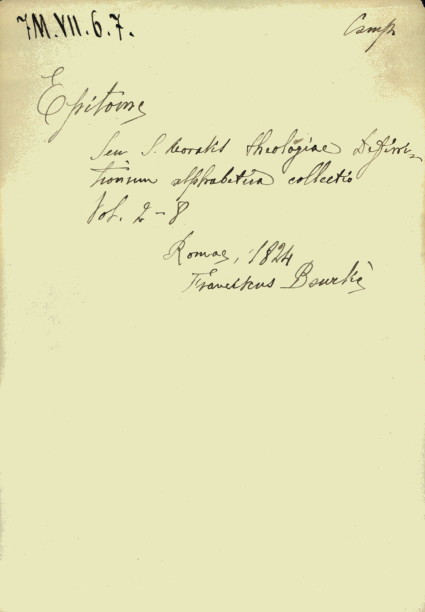 7M.VII.6.7.
Camp
Epitome
Seu S. Moralis theologiae Defini-
tionum alphabetica collectio
Vol. 2-8
Romae, 1824
Franciskus Bourkè